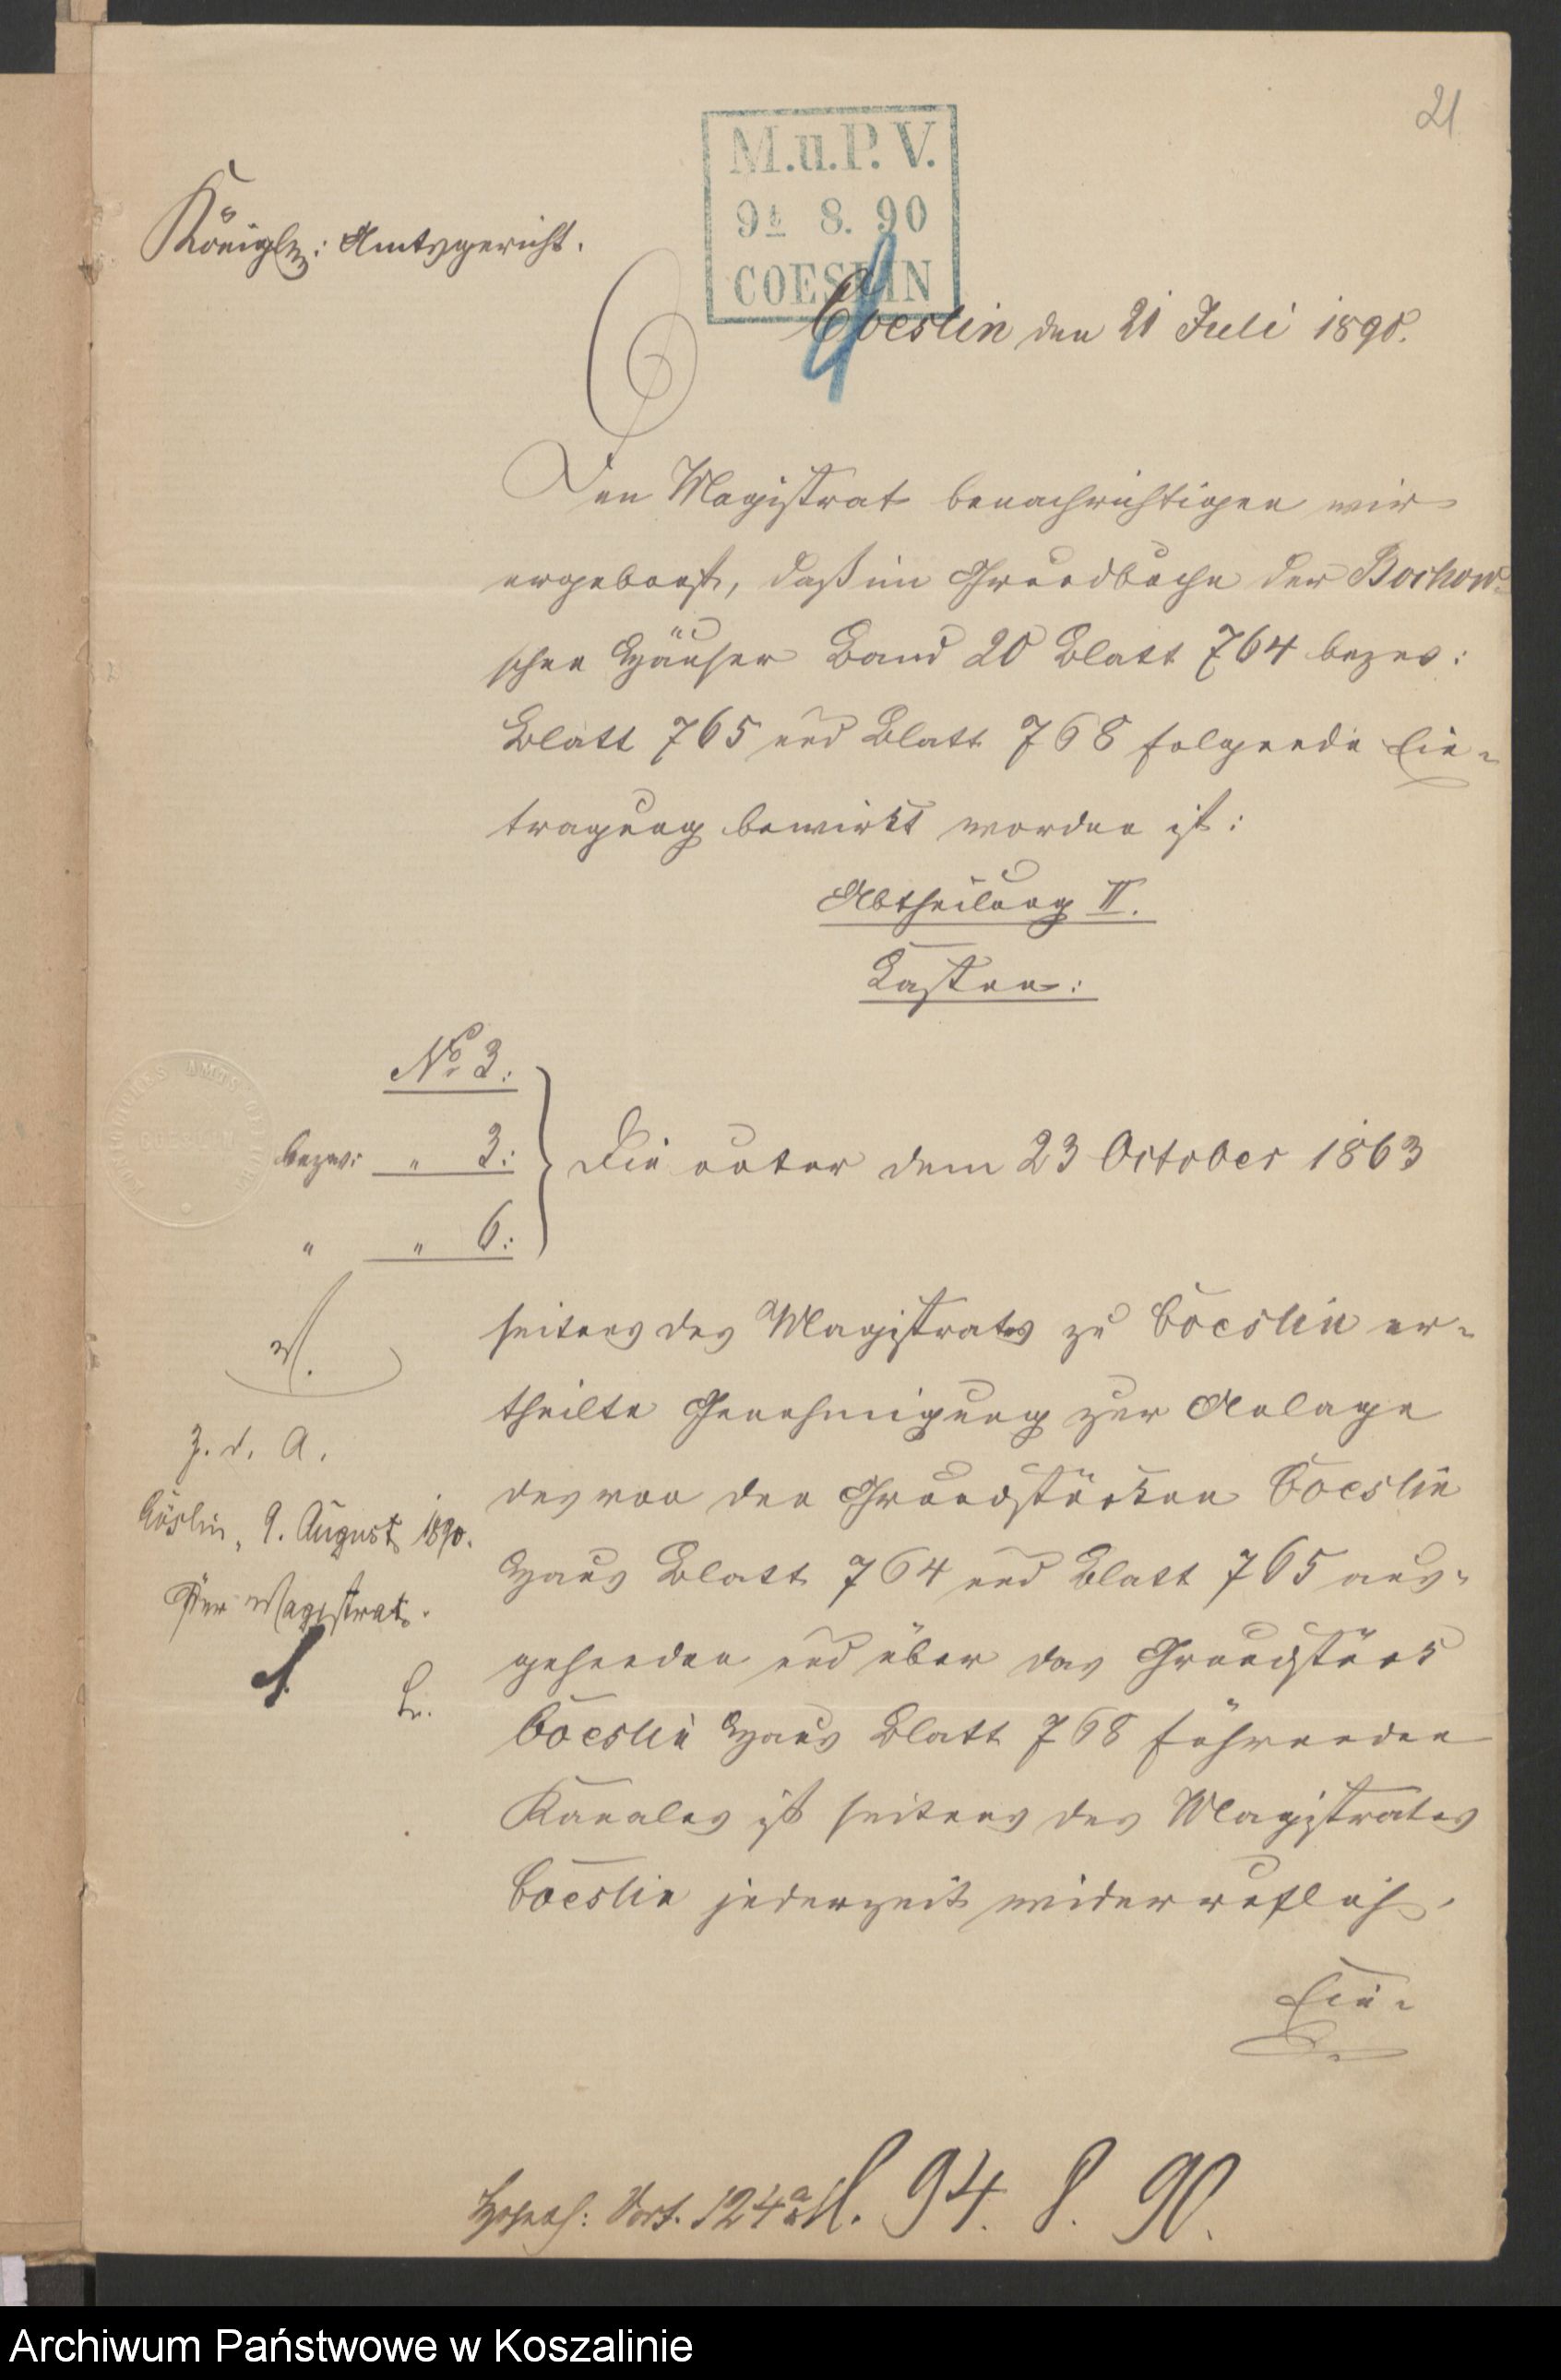 21
M.u.P.V.
94 8. 90
COESLIN
Königl: Amtsgericht.
Coeslin den 21 Juli 1890.
Den Magistrat benachrichtigen wir
ergebenst, daß im Grundbuche der Bochow-
schen Häuser Band 20 Blatt 764 bezw:
Blatt 765 und Blatt 768 folgende Ein-
tragung bewirkt worden ist:
Abtheilung II.
Lasten:
No 3:
bezw: " 3:
" " 6:
Die unter dem 23 October 1863
seitens des Magistrates zu Coeslin er-
theilte Genehmigung zur Anlage
des von den Grundstücken Coeslin
Haus Blatt 764 und Blatt 765 aus-
gehenden und über das Grundstück
Coeslin Haus Blatt 768 führenden
Kanales ist seitens des Magistrates
Coeslin jederzeit widerruflich.
Ein-
z. d. A.
Cöslin, 9. August 1890.
Der Magistrat.
94. 8. 90.
Archiwum Państwowe w Koszalinie